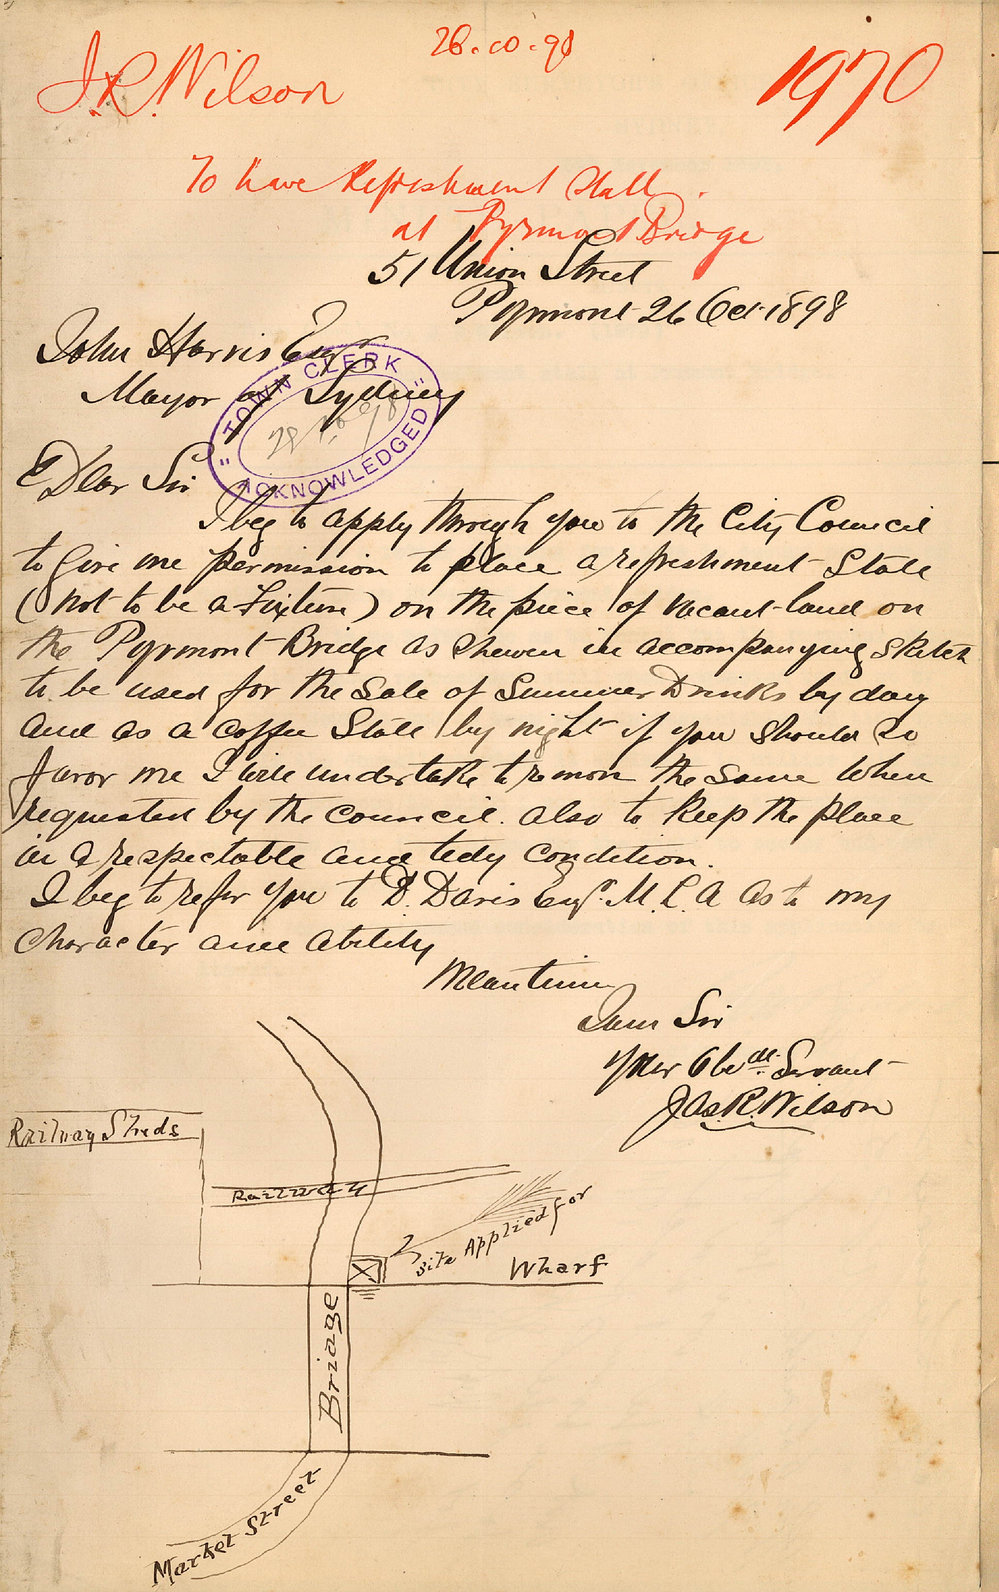 26.10.98
J.R. Wilson
1970
To have Refreshment Stall.
at Pyrmont Bridge
51 Union Street
Pyrmont 26 Oct 1898
John Harris Esqr
Mayor of Sydney
TOWN CLERK
28.10.98
ACKNOWLEDGED
Dear Sir
I beg to apply through you to the City Council
to give me permission to place a refreshment Stall
(Not to be a Fixture) on the piece of vacant land on
the Pyrmont Bridge as Shewn in accompanying Sketch
to be used for the Sale of Summer Drinks by day
and as a Coffee Stall by night if you should so
favor me I will undertake to remov the same when
requested by the council. also to keep the place
in a respectable and tedy condition.
I beg to refer you to D. Davis Esqr. M.L.A as to my
Character and ability
Meantime
I am Sir
Your Obedt. Servant
Jas R. Wilson
Railway Sheds
Railway
Site Applied for
Wharf
Bridge
Market Street